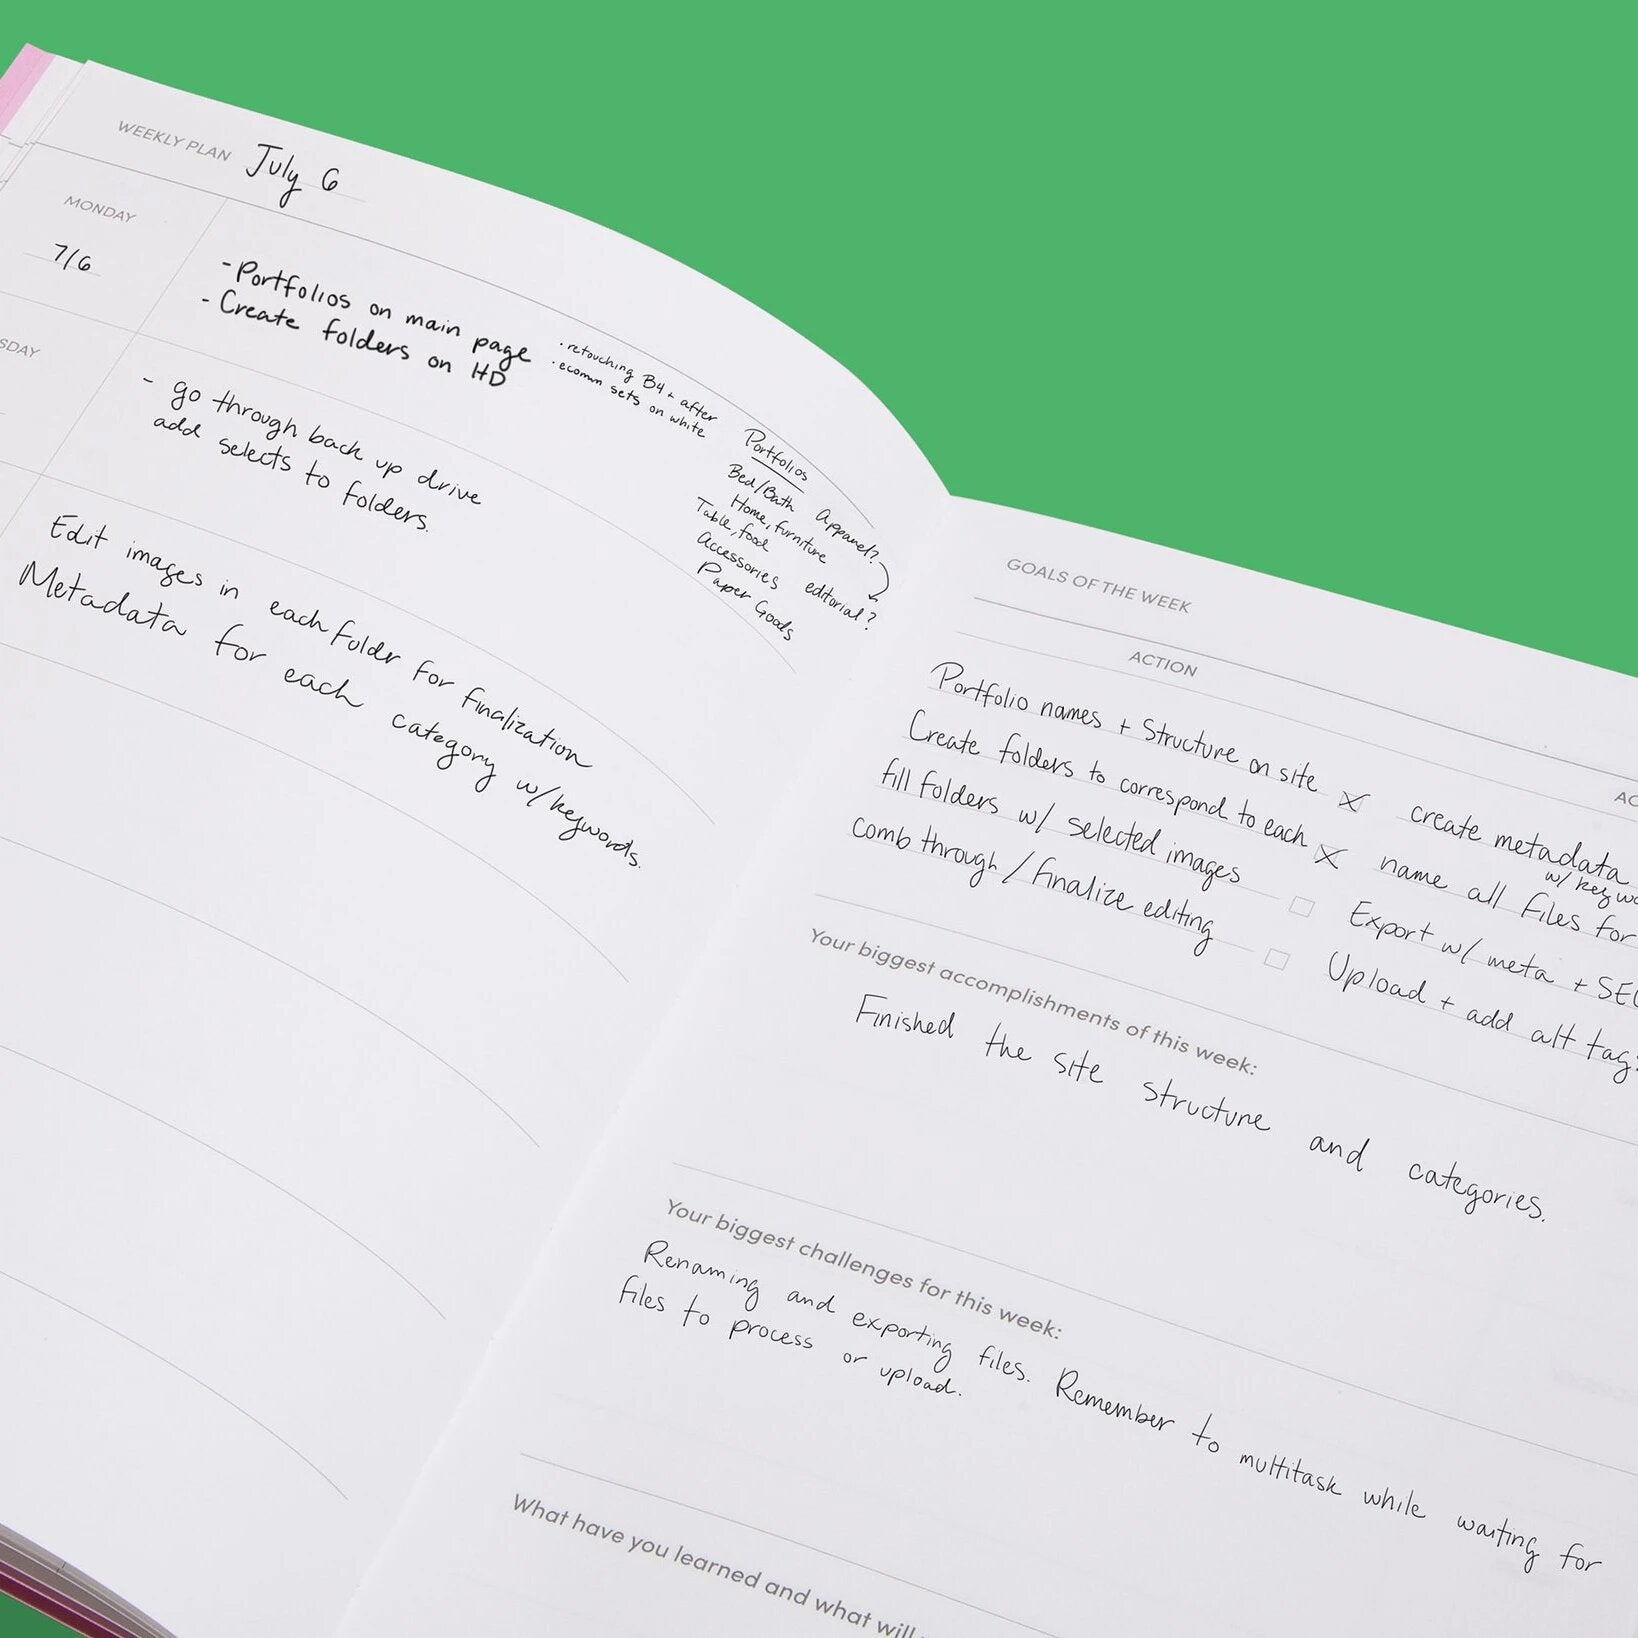 WEEKLY PLAN July 6
MONDAY
7/6
- Portfolios on main page
- Create folders on HD
· retouching B4 + after
· ecomm sets on white
SDAY
- go through back up drive
add selects to folders.
Portfolios
Bed/Bath Apparel?
Home, furniture
Table, food
Accessories editorial?
Paper Goods
Edit images in each folder for finalization
Metadata for each category w/keywords.
GOALS OF THE WEEK
ACTION
Portfolio names + Structure on site
Create folders to correspond to each
fill folders w/ selected images
comb through / finalize editing
AC
create metadata
w/ keywo
name all files for
Export w/ meta + SEO
Upload + add alt tags
Your biggest accomplishments of this week:
Finished the site structure and categories.
Your biggest challenges for this week:
Renaming and exporting files. Remember to multitask while waiting for
files to process or upload.
What have you learned and what will